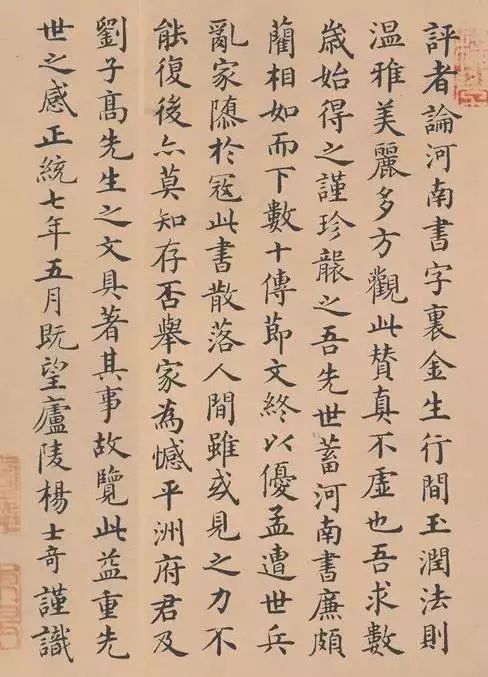 評者論河南書字裏金生行間玉潤法則
温雅美麗多方觀此賛真不虛也吾求數
歳始得之謹珍襲之吾先世蓄河南書廉頗
藺相如而下數十傳莭文終以優孟遭世兵
亂家隳於冦此書散落人間雖或見之力不
能復後亦莫知存否舉家為憾平洲府君及
劉子髙先生之文具著其事故覽此益重先
世之感正統七年五月既望廬陵楊士奇謹識